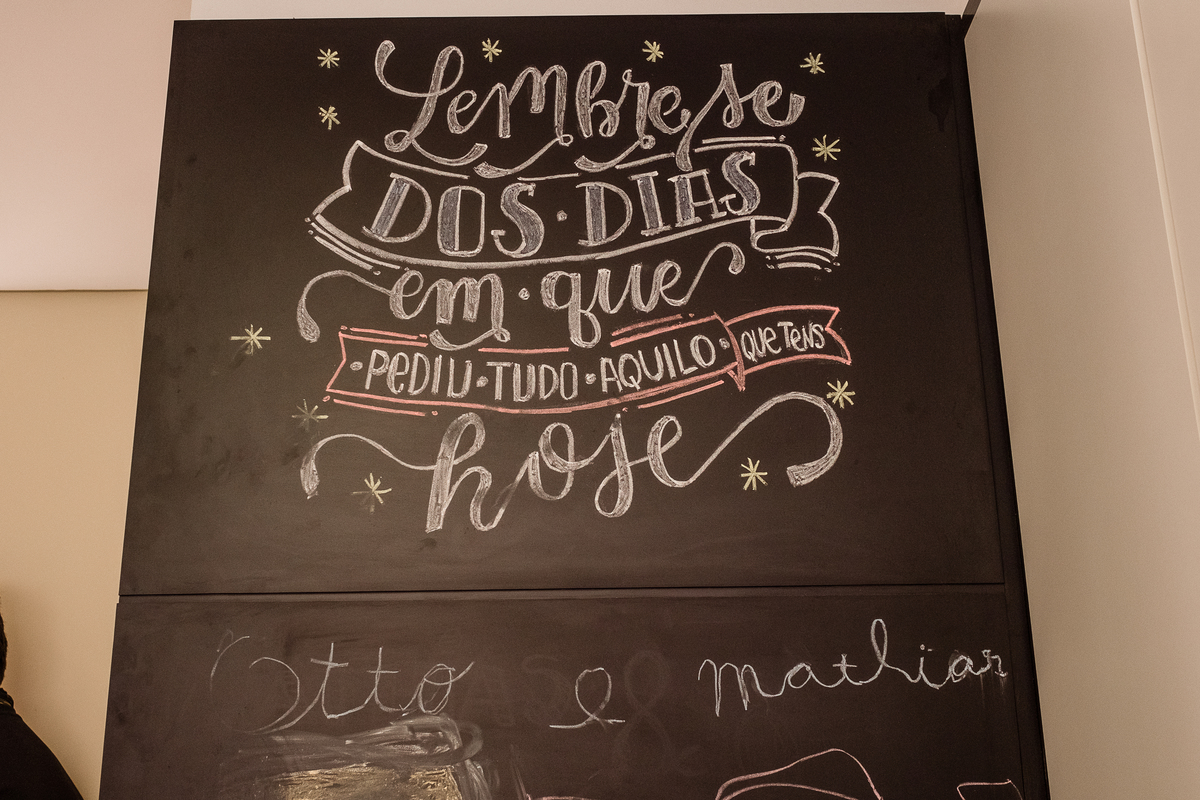 Lembre se
DOS · DIAS
em · que
· PEDIU · TUDO · AQUILO · QUE TENS
hoje
Otto e Mathias